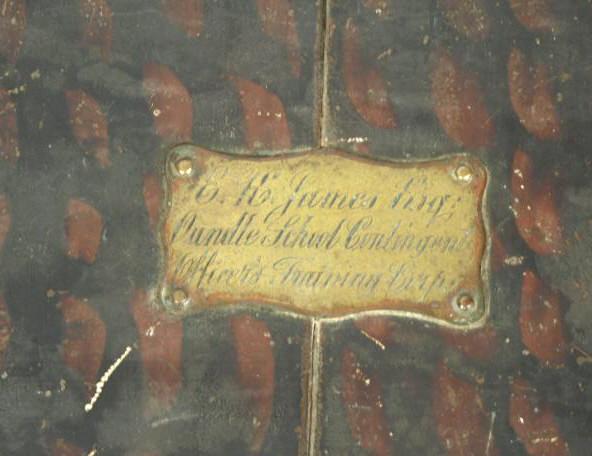 E. K. James Esq;
Oundle School Contingent
Officer's Training Corps